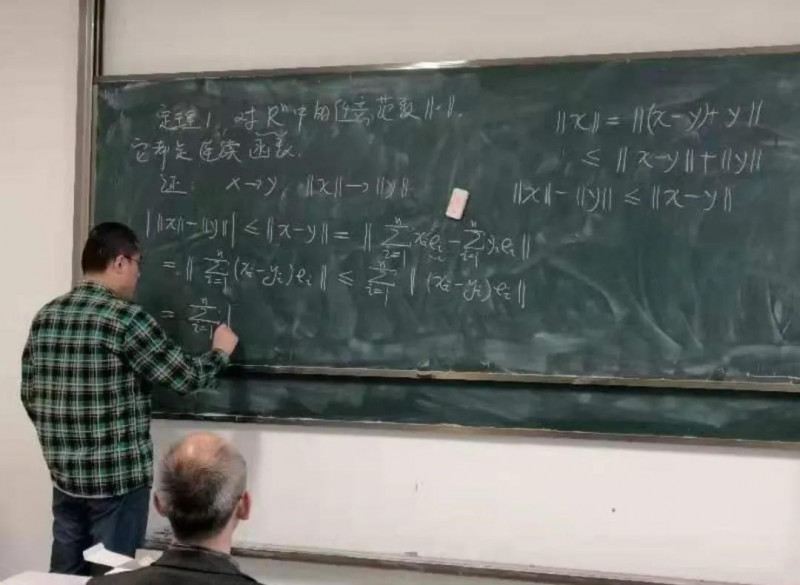 定理1. 对 R^n 中的任意范数 ||·||,
它都是连续函数.
证: x→y, ||x||→||y||
| ||x||-||y|| | ≤ ||x-y|| = || ∑_{i=1}^n x_i e_i - ∑_{i=1}^n y_i e_i ||
= || ∑_{i=1}^n (x_i-y_i) e_i || ≤ ∑_{i=1}^n || (x_i-y_i) e_i ||
= ∑_{i=1}^n |
||x|| = ||(x-y)+y||
≤ ||x-y||+||y||
||x||-||y|| ≤ ||x-y||